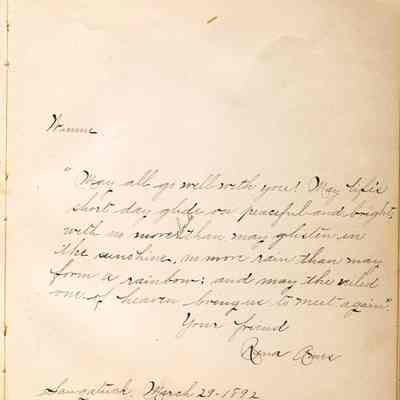 "May all go well with you! May life's
short day glide on peaceful and bright,
with no more than may glisten in
the sunshine, no more rain than may
form a rainbow; and may the viled
one of heaven bring us to meet again".
Your friend
Rena
Saugatuck, March 29-1892